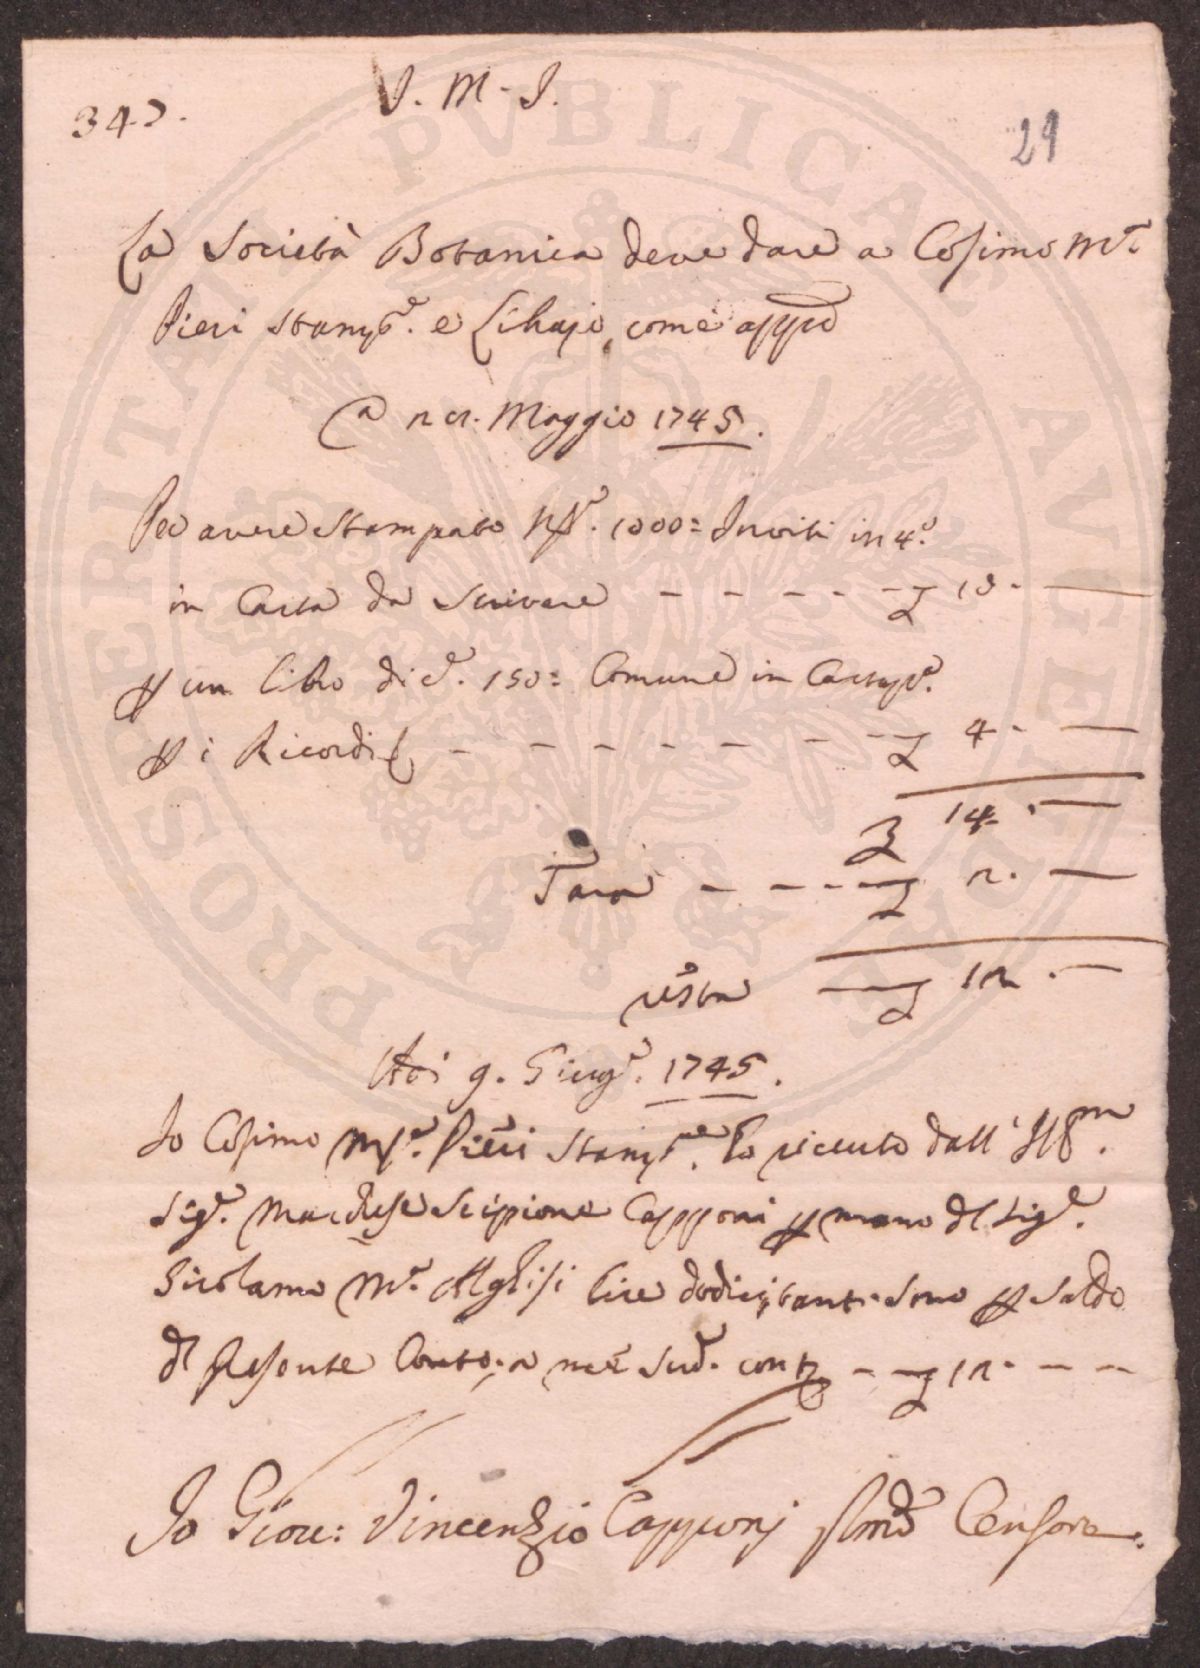 J. M. J.
343.
29
La Società Botanica deve dare a Cosimo M.ª
Pieri Stamp.e e Libraio, come app.o
A 21. Maggio 1745.
Per avere Stampato N.º 1000 = Inviti in 4.º
in Carta da Scrivere - - - - - £ 10. —
p un Libro di c.e 150 = Comune in
p i Ricordi - - - - - - - £ 4. —
£ 14. —
Tara - - - - £ 2. —
resta — £ 12. —
Adì 9. Giug.o 1745.
Io Cosimo M.ª Pieri Stamp.re ho riceuto dall' Ill.mo
Sig.e Marchese Scipione Capponi p mano del Sig.e
Girolamo M.ª Alghisi lire dodici, tanti sono p saldo
del Presente Conto, a me Sud.o cont.i - - £ 12. - -
Io Giov: Vincenzio Capponj Censore.
PROSPERITATI PVBLICAE AVGENDAE